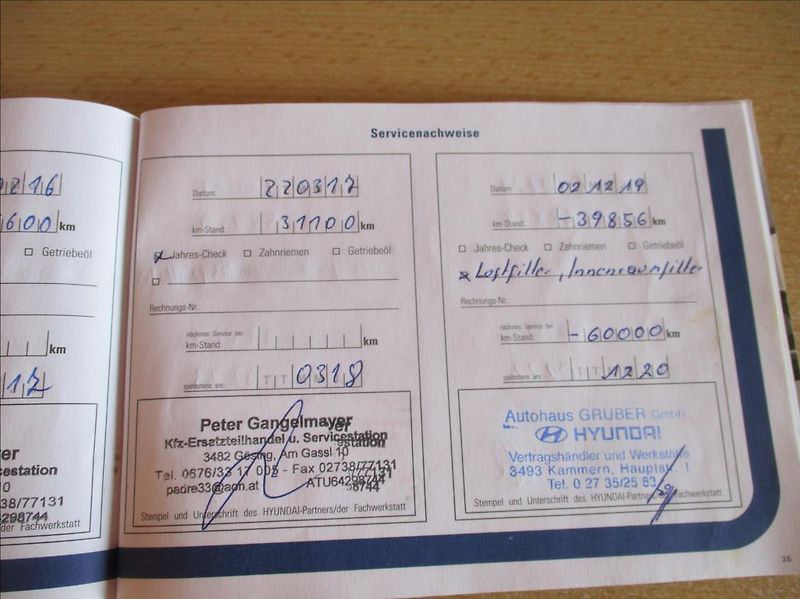 Servicenachweise
216
600 km
Getriebeöl
km
17
estation
10
02738/77131
/der Fachwerkstatt
Datum: 220317
km-Stand: 31100 km
Jahres-Check Zahnriemen Getriebeöl
Rechnungs-Nr.
nächstes Service bei
km-Stand: km
spätestens am: TT 0318
Peter Gangelmayer
Kfz-Ersatzteilhandel u. Servicestation
3482 Gösing, Am Gassl 10
Tel. 0676/33 17 005 - Fax 02738/77131
padre33@aon.at ATU64298744
Stempel und Unterschrift des HYUNDAI-Partners/der Fachwerkstatt
Datum: 021219
km-Stand: -39856 km
Jahres-Check Zahnriemen Getriebeöl
Luftfilter, Innenraumfilter
Rechnungs-Nr.
nächstes Service bei
km-Stand: -60000 km
spätestens am: TT 1220
Autohaus GRUBER GmbH
HYUNDAI
Vertragshändler und Werkstätte
3493 Kammern, Hauptstr. 1
Tel. 0 27 35/25 63
Stempel und Unterschrift des HYUNDAI-Partners/der Fachwerkstatt
35